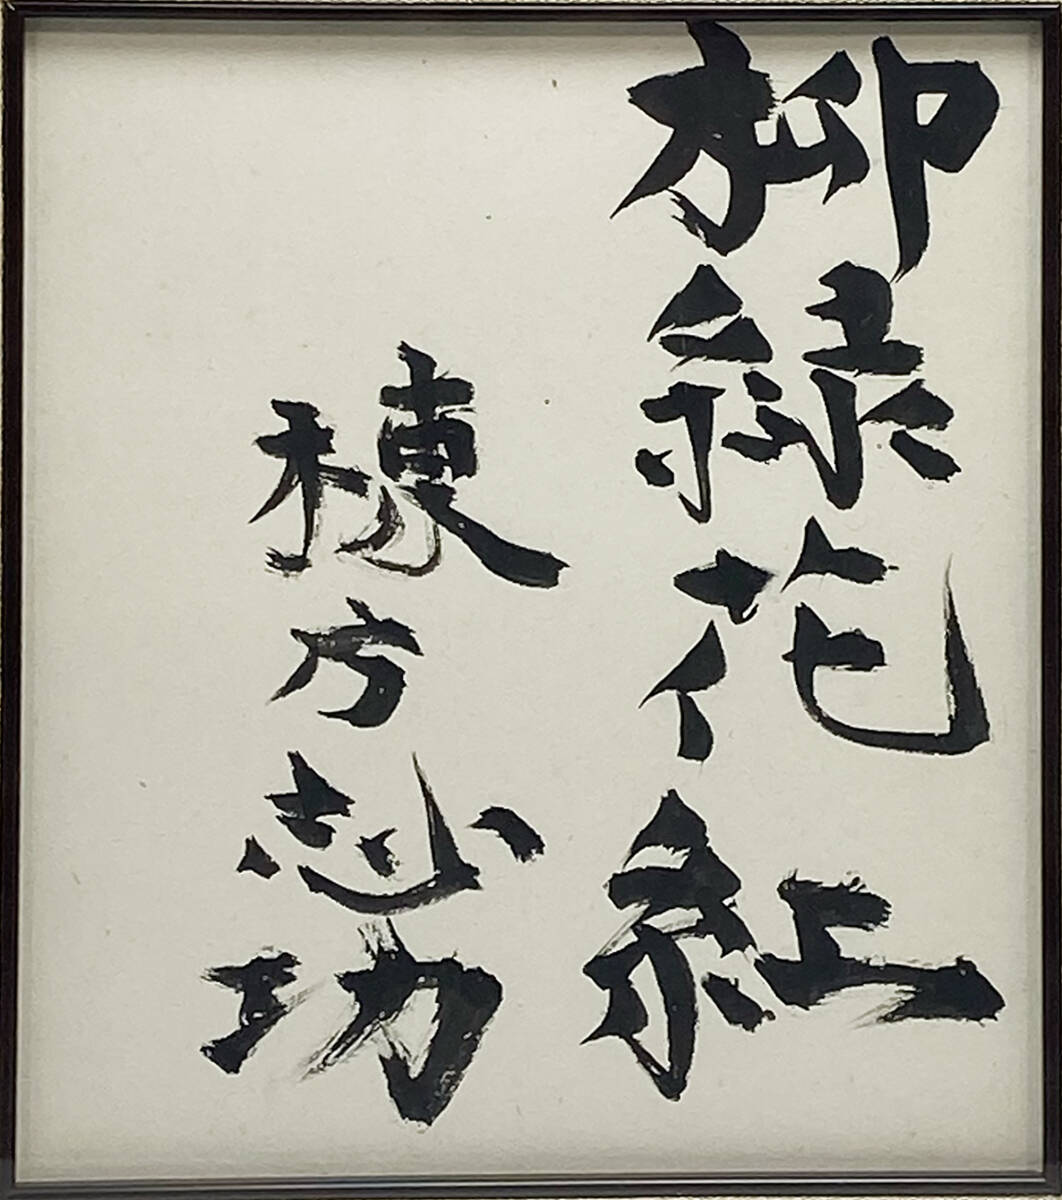 柳緑花紅
棟方志功